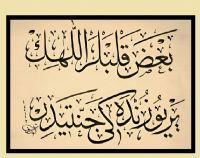 بعض قلبلر اللهڭ
يريوزنده كى جنتيدر